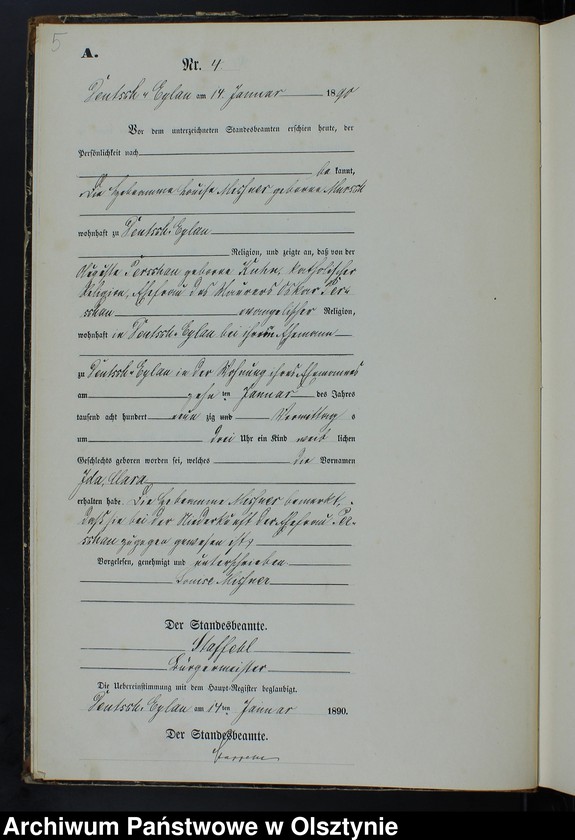 5
A.
Nr. 4
Deutsch-Eylau am 14. Januar 1890
Vor dem unterzeichneten Standesbeamten erschien heute, der
Persönlichkeit nach
be kannt,
die Hebeamme Louise geborene
wohnhaft zu Deutsch-Eylau
Religion, und zeigte an, daß von der
Auguste geborene Kuhn, katholischer
Religion, Ehefrau des Maurers Oskar
evangelischer Religion,
wohnhaft in Deutsch-Eylau bei ihrem Ehemann
zu Deutsch-Eylau in der Wohnung ihres Ehemannes
am zehn ten Januar des Jahres
tausend acht hundert neun zig und Vormittag s
um drei Uhr ein Kind weib lichen
Geschlechts geboren worden sei, welches die Vornamen
Ida, Clara
erhalten habe. Die Hebeamme bemerkt,
daß sie bei der Niederkunft der Ehefrau
zugegen gewesen ist,
Vorgelesen, genehmigt und unterschrieben
Louise
Der Standesbeamte.
Staffehl
Bürgermeister
Die Uebereinstimmung mit dem Haupt-Register beglaubigt.
Deutsch-Eylau am 14ten Januar 1890.
Der Standesbeamte.
Archiwum Państwowe w Olsztynie